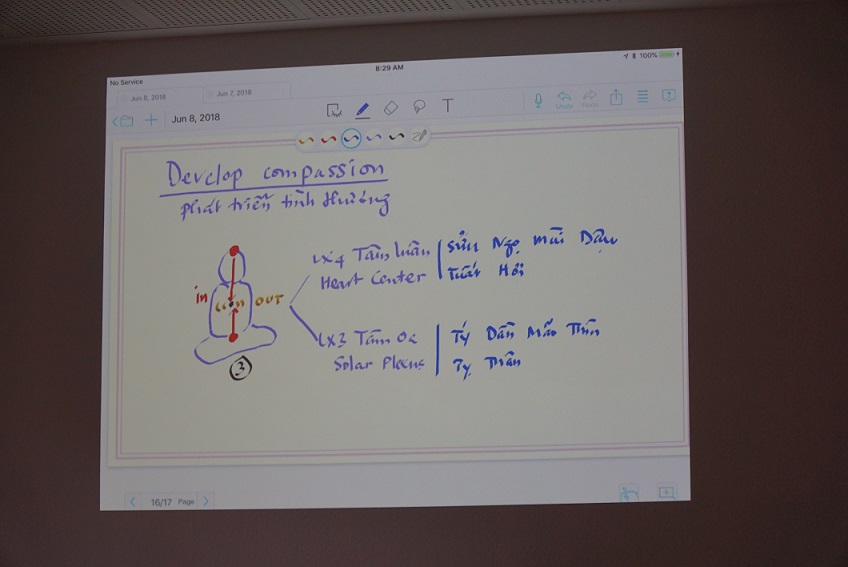 No Service
8:29 AM
100%
Jun 8, 2018
Jun 7, 2018
Jun 8, 2018
T
Undo
Redo
Develop compassion
phát triển tình thương
LX4 Tâm luân
Heart Center
Sửu Ngọ Mùi Dậu
Tuất Hợi
in
OUT
LX3
Solar Plexus
Tý Dần Mão Thìn
Tỵ Thân
3
16/17 Page